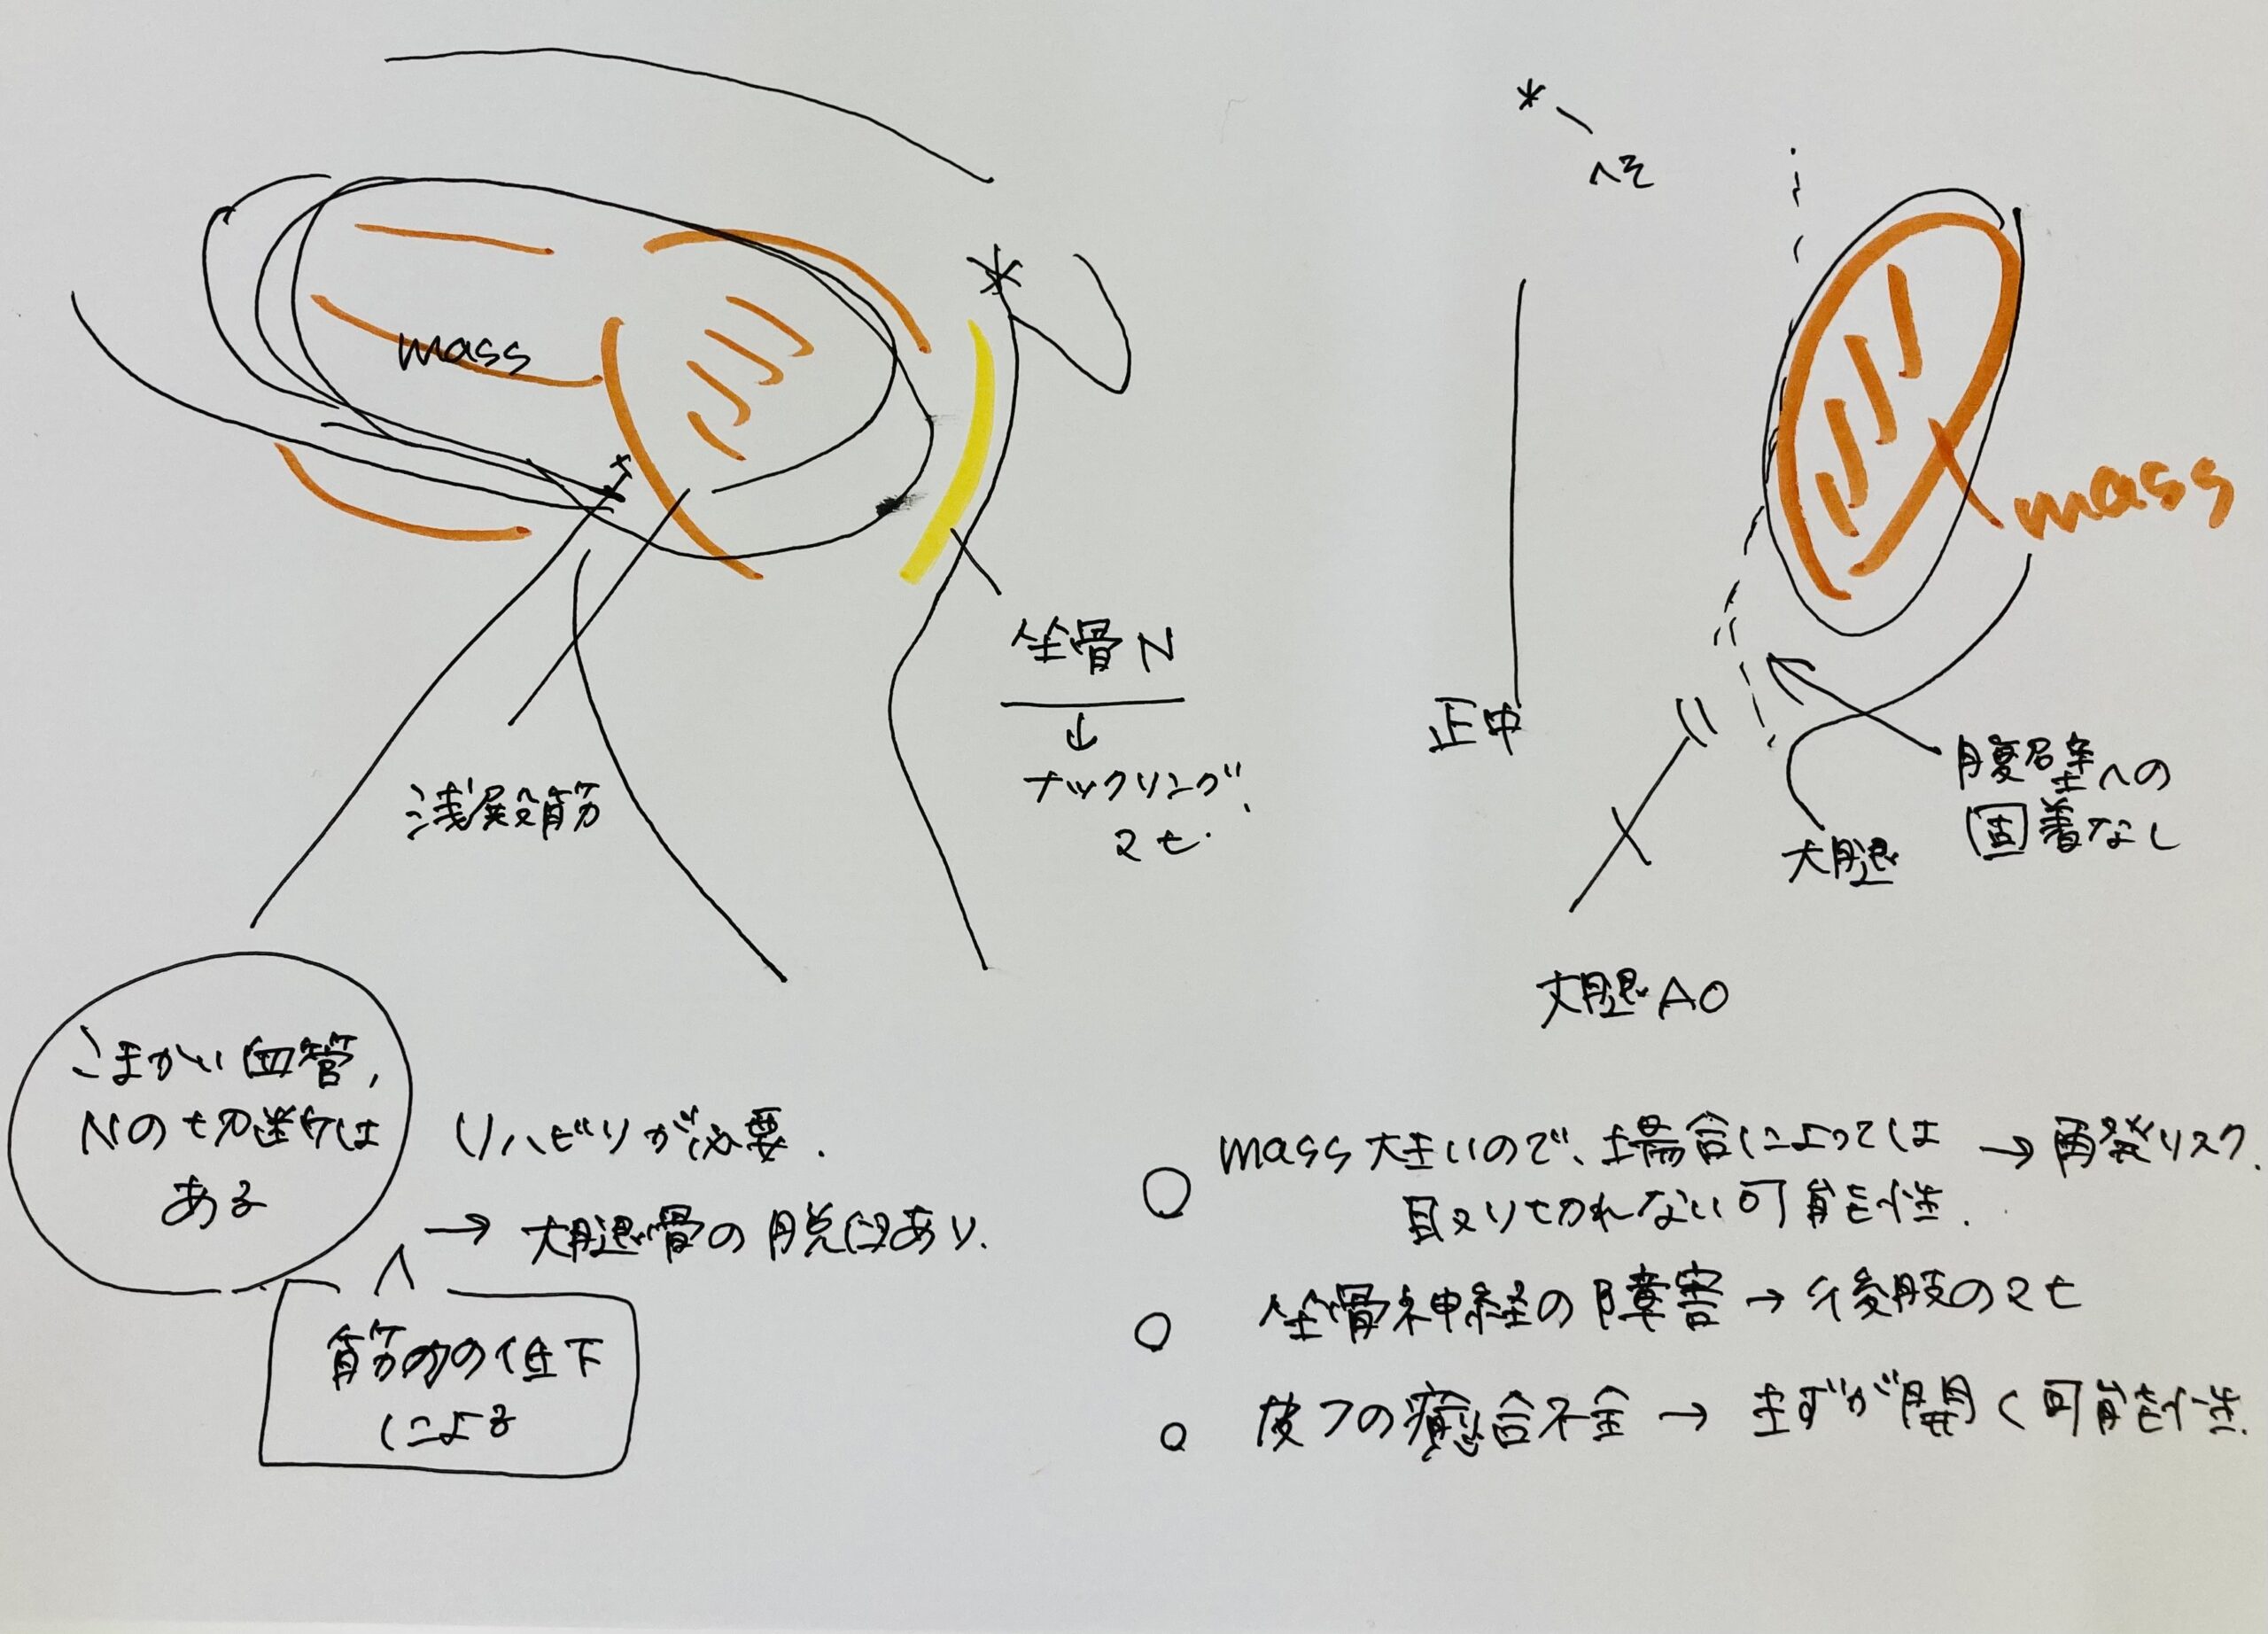 mass
坐骨N
↓
ナックリング、
マヒ.
浅殿筋
こまかい血管,
Nの切断は
ある
リハビリが必要.
→ 大腿骨の脱臼あり.
筋肉の低下
による
へそ
mass
正中
腹壁への
固着なし
大腿
大腿AO
○ mass 大きいので、場合によっては → 再発リスク.
取り切れない可能性.
○ 坐骨神経の障害 → 後肢のマヒ
○ 皮フの癒合不全 → きずが開く可能性.